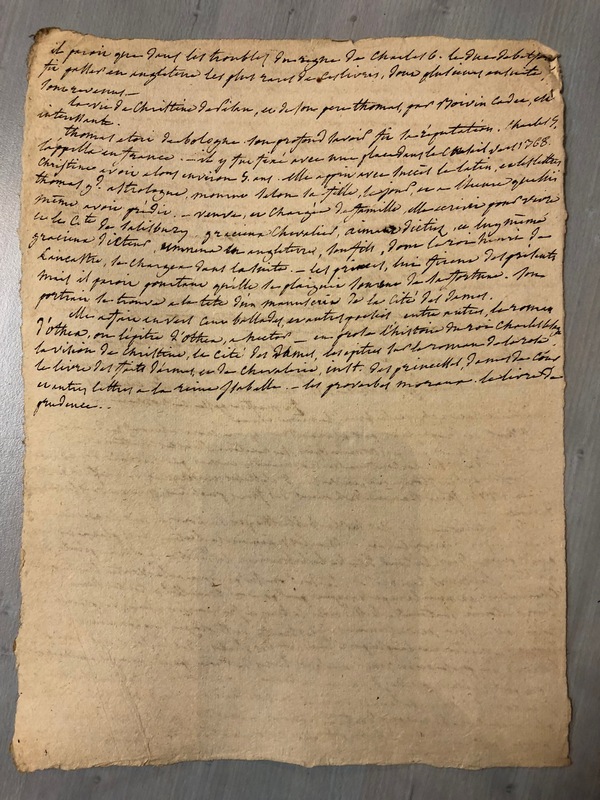 il paroit que dans les troubles du regne de Charles 6. le duc de betfort
fit passer en angleterre les plus rares de ces livres, dont plusieurs ensuite
sont revenus —
la vie de Christine de Pisan, et de son pere thomas, par Boivin Cadet, est
interessante.
thomas etoit de bologne. son profond savoir fit sa réputation. Charles 5.
l'appella en france. — il y fut fixé avec une place dans le Conseil vers 1768.
Christine avoit alors environ 5. ans. elle apprit avec succès le latin, et les lettres
thomas, gd. astrologue, mourut selon sa fille, le jour et a l'heure qu'il
même avoit prédit. — veuve, et chargée de famille, elle écrivit pour vivre
et le Cte de Salisbury. gracieux Chevalier, aimant dictiez, et luy même
gracieux dicteur, emmena en angleterre, son fils, dont le roi henri de
Lancastre, se chargea dans la suite. — les princes, lui firent des presents
mais il paroit pourtant qu'elle se plaignit souvent de sa fortune. son
portrait se trouve a la tete d'un manuscrit de la Cité des Dames.
elle a fait en vers cent ballades, et autres poesies entre autres, le roman
d'Othea, ou l'épitre d'Othea, a hector — en prose l'histoire du roi Charles le sage
la vision de Christine, la Cité des Dames, les epitres sur le roman de la rose,
le livre des faits d'armes, et de Chevalerie, inst. des princesses, dames de Cour
et autres lettres a la reine Isabelle. — les proverbes moraux. le livre de
prudence..